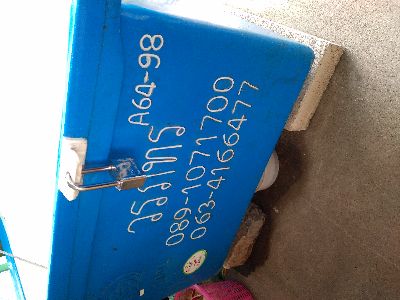 วรภัทร A64-98
089-1071700
063-4166477